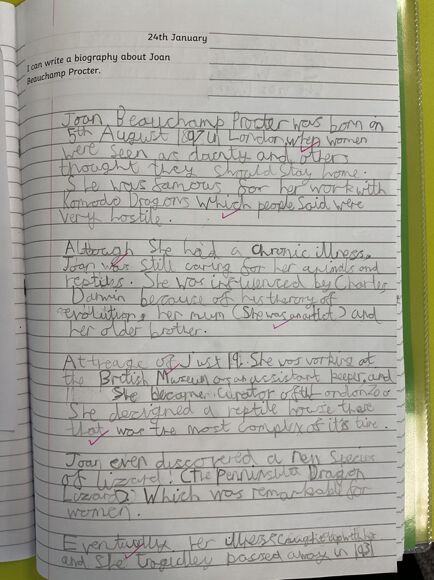 24th January
I can write a biography about Joan
Beauchamp Procter.
Joan Beauchamp Procter was born on
5th August 1897 in London, when women
were seen as dainty and others
thought they should stay home.
She was famous for her work with
Komodo Dragons which people said were
very hostile.
Although She had a chronic illness,
Joan was still caring for her animals and
reptiles. She was influenced by Charles
Darwin because of his theory of
evolution, her mum (She was an artist) and
her older brother.
At the age of Just 19, She was working at
the British Museum as an assistant keeper, and
She became curator of
She designed a reptile house there
that was the most complex of it's time.
Joan even discovered a new species
of lizard! (The Penninsula Dragon
Lizard) Which was remarkable for
women.
Eventually, her illness caught up with her
and She tragicley passed away in 1931